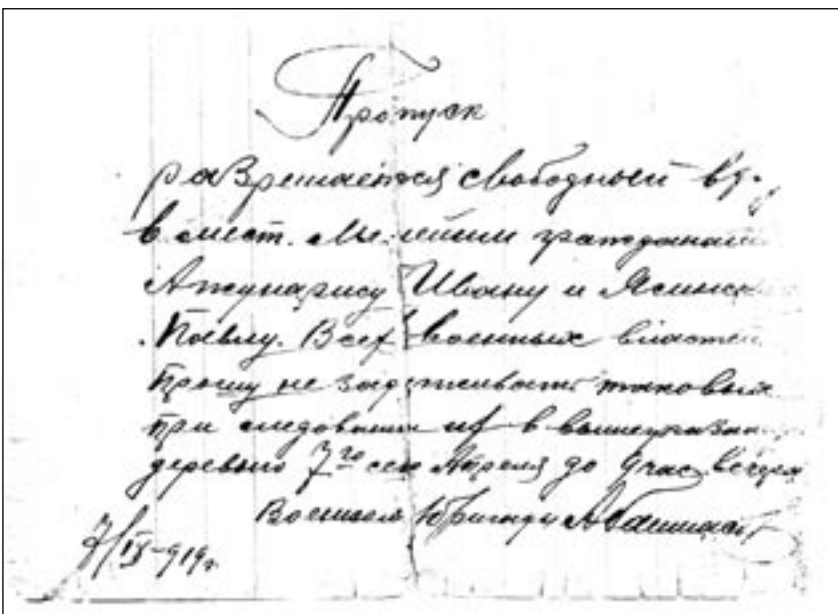 Пропуск
разрешается свободный
в мест. гражданам
Ажунарису Ивану и
Павлу. Всех военных властей
прошу не задерживать таковых
при следовании их в вышеуказан
деревню 7го сего Апреля до 9 час. вечера
Военком бригады
7/IV-919г.